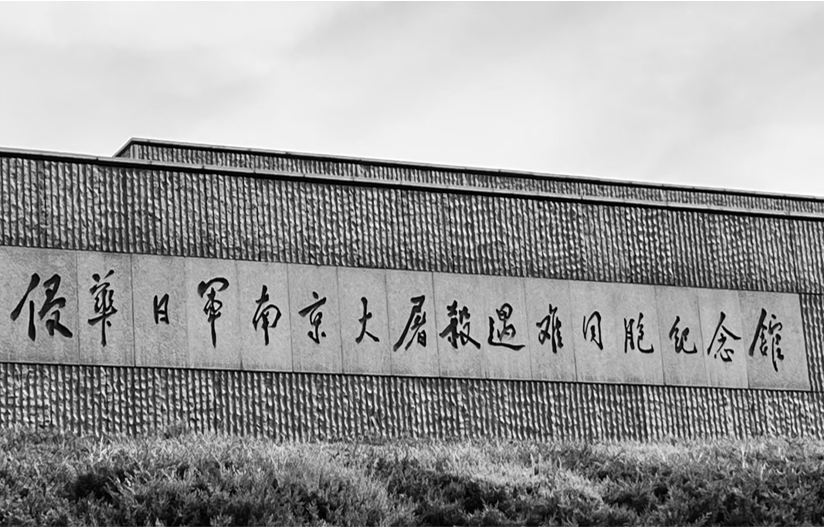 侵華日軍南京大屠殺遇难同胞紀念館